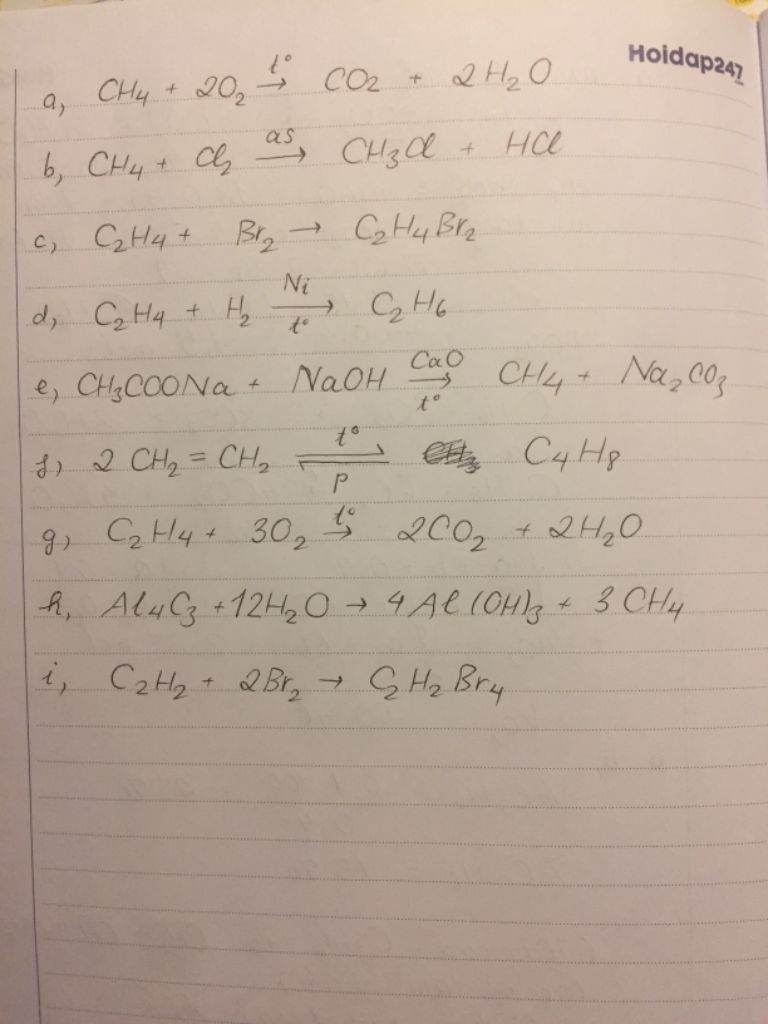 Hoidap247
a, CH₄ + 2O₂ t°→ CO₂ + 2H₂O
b, CH₄ + Cl₂ as→ CH₃Cl + HCl
c, C₂H₄ + Br₂ → C₂H₄Br₂
d, C₂H₄ + H₂ Ni→t° C₂H₆
e, CH₃COONa + NaOH CaO→t° CH₄ + Na₂CO₃
f, 2 CH₂ = CH₂ t°⇌p C₄H₈
g, C₂H₄ + 3O₂ t°→ 2CO₂ + 2H₂O
h, Al₄C₃ + 12H₂O → 4Al(OH)₃ + 3CH₄
i, C₂H₂ + 2Br₂ → C₂H₂Br₄